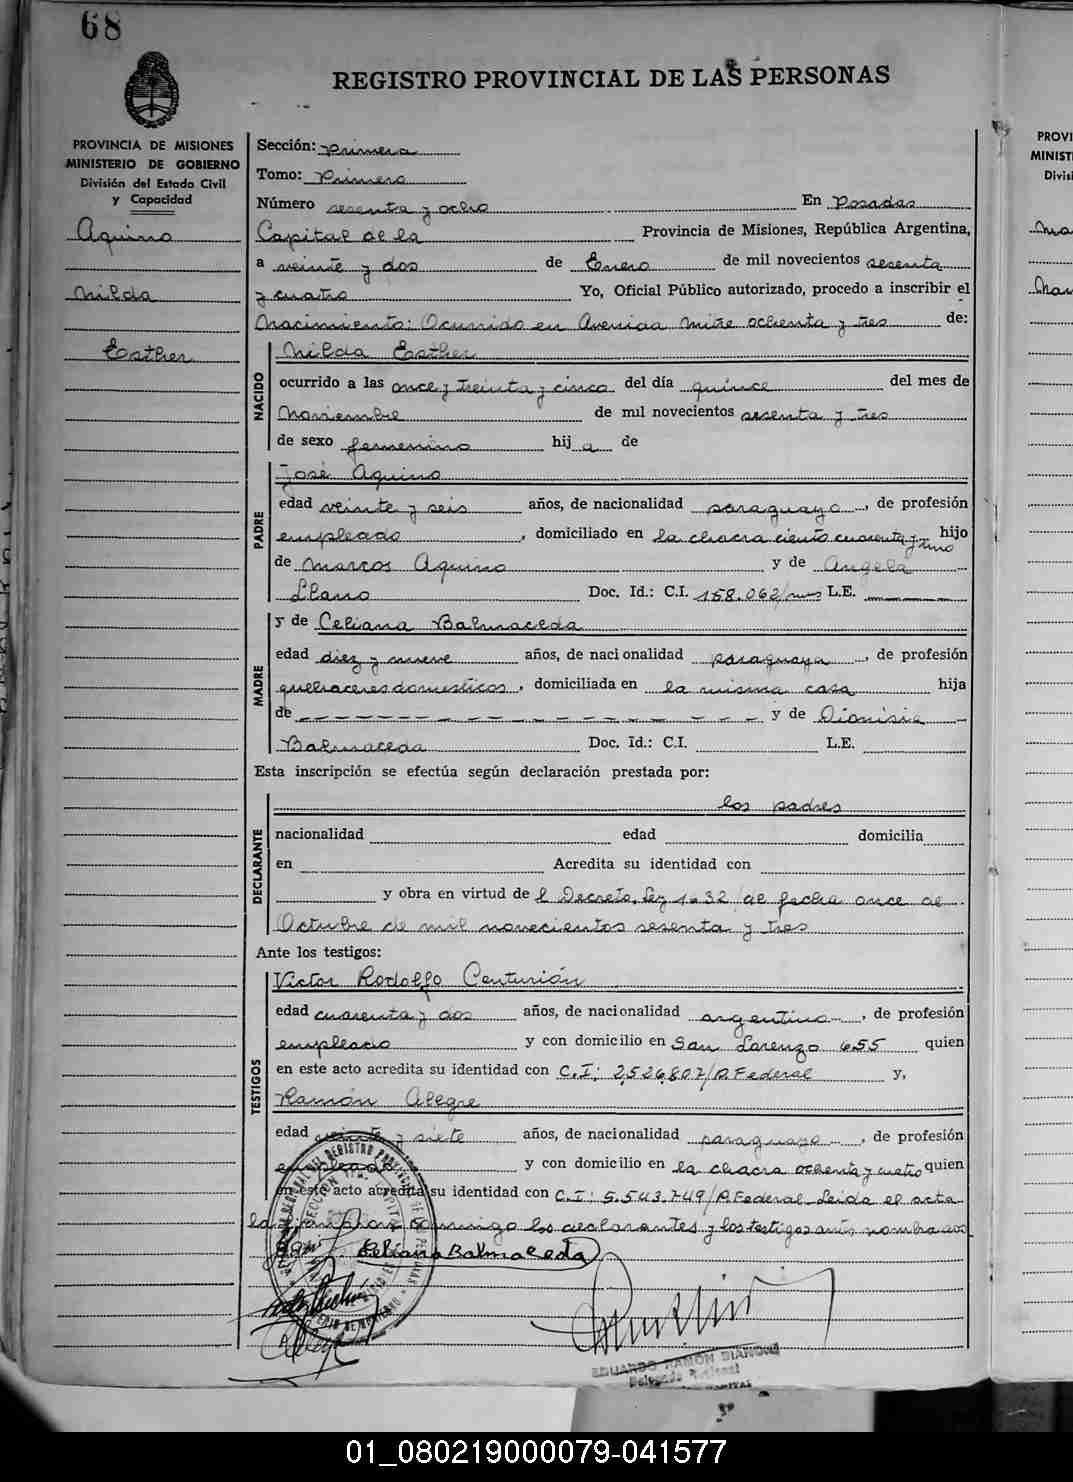 68
REGISTRO PROVINCIAL DE LAS PERSONAS
PROVINCIA DE MISIONES
MINISTERIO DE GOBIERNO
División del Estado Civil
y Capacidad
Aquino
Nilda
Esther
Sección: Primera
Tomo: Primero
Número sesenta y ocho En Posadas
Capital de la Provincia de Misiones, República Argentina,
a veinte y dos de Enero de mil novecientos sesenta
y cuatro Yo, Oficial Público autorizado, procedo a inscribir el
Nacimiento: Ocurrido en Avenida Mitre ochenta y tres de:
NACIDO
Nilda Esther
ocurrido a las once y treinta y cinco del día quince del mes de
Noviembre de mil novecientos sesenta y tres
de sexo femenino hij a de
PADRE
José Aquino
edad veinte y seis años, de nacionalidad paraguayo, de profesión
empleado, domiciliado en la chacra ciento cuarenta y uno hijo
de Marcos Aquino y de Angela
Llano Doc. Id.: C.I. 158.062/mnes L.E.
MADRE
y de Celiana Balmaceda
edad diez y nueve años, de nacionalidad paraguaya, de profesión
quehaceres domesticos, domiciliada en la misma casa hija
de y de Dionisia
Balmaceda Doc. Id.: C.I. L.E.
Esta inscripción se efectúa según declaración prestada por:
DECLARANTE
los padres
nacionalidad edad domicilia
en Acredita su identidad con
y obra en virtud de l Decreto Ley 1632/de fecha once de
Octubre de mil novecientos sesenta y tres
Ante los testigos:
TESTIGOS
Victor Rodolfo Centurión
edad cuarenta y dos años, de nacionalidad argentino, de profesión
empleado y con domicilio en San Lorenzo 655 quien
en este acto acredita su identidad con C.I: 2,526,807/P.Federal y,
Ramón Alegre
edad veinte y siete años, de nacionalidad paraguayo, de profesión
empleado y con domicilio en la chacra ochenta y cuatro quien
en este acto acredita su identidad con C.I: 5.543.749/P.Federal. Leida el acta
la firman conmigo los declarantes y los testigos arriba nombrados
Celiana Balmaceda
EDUARDO RAMÓN
PROVI
MINIST
Divisi
01_080219000079-041577